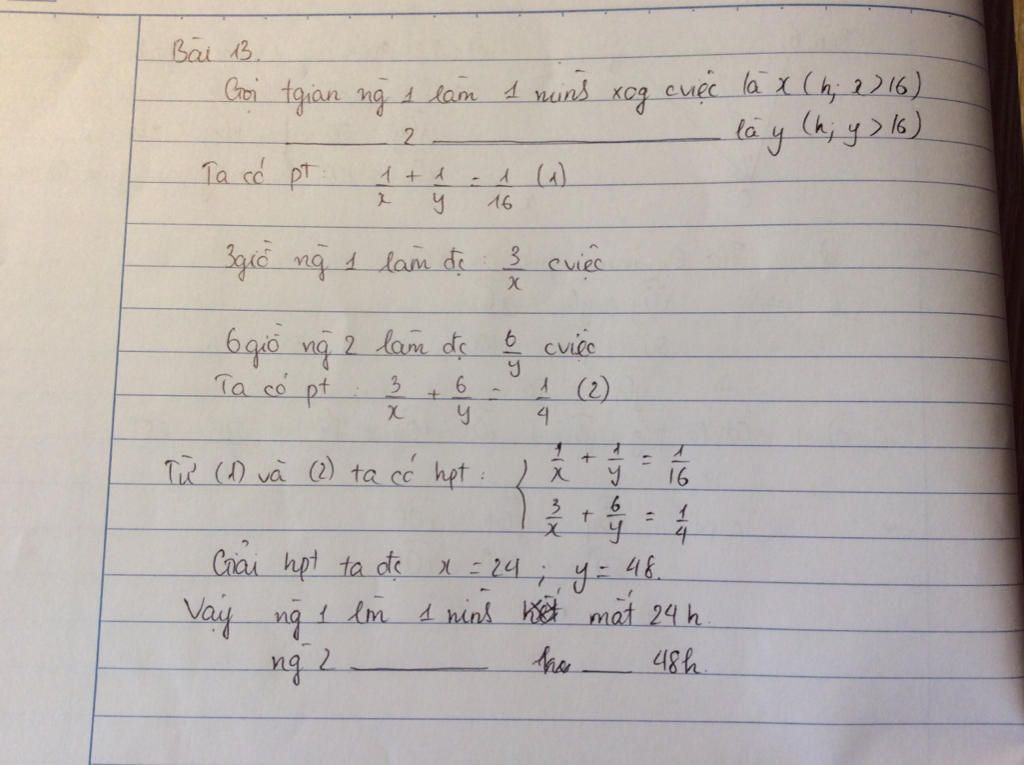 Bài 13.
Gọi tgian ng̃ 1 làm 1 mins̃ xog cviệc là x (h; x>16)
2 là y (h; y>16)
Ta có pt: 1/x + 1/y = 1/16 (1)
3giờ ng̃ 1 làm đc: 3/x cviệc
6giờ ng̃ 2 làm đc 6/y cviệc
Ta có pt: 3/x + 6/y = 1/4 (2)
Từ (1) và (2) ta có hpt: { 1/x + 1/y = 1/16
3/x + 6/y = 1/4
Giải hpt ta đc x = 24 ; y = 48.
Vậy ng̃ 1 lm̀ 1 mins̃ mất 24h.
ng̃ 2 48h.